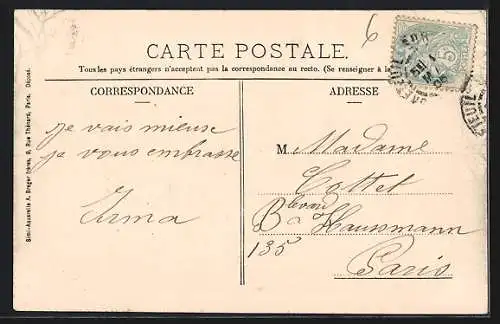 6
CARTE POSTALE.
Tous les pays étrangers n'acceptent pas la correspondance au recto. (Se renseigner à la
CORRESPONDANCE
ADRESSE
je vais mieuse
je vous embrasse
Irma
M Madame
Cottet
Blevard Haussmann
135
Paris
Simi-Aquarelle A. Breger frères, 9, Rue Thénard, Paris. Déposé.